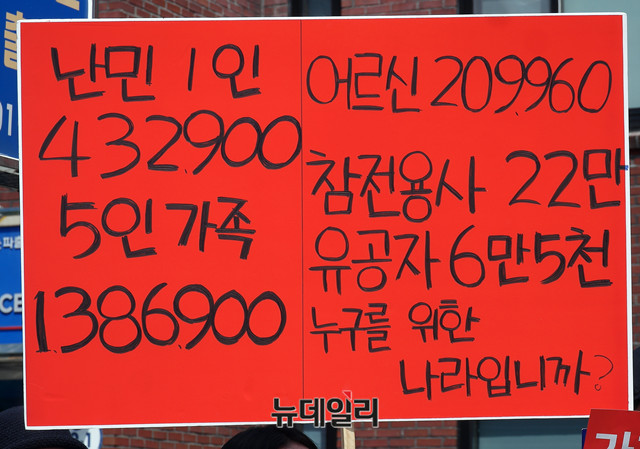 난민 1인
432,900
5인 가족
1,386,900
어르신 209,960
참전용사 22만
유공자 6만5천
누구를 위한
나라입니까?
뉴데일리